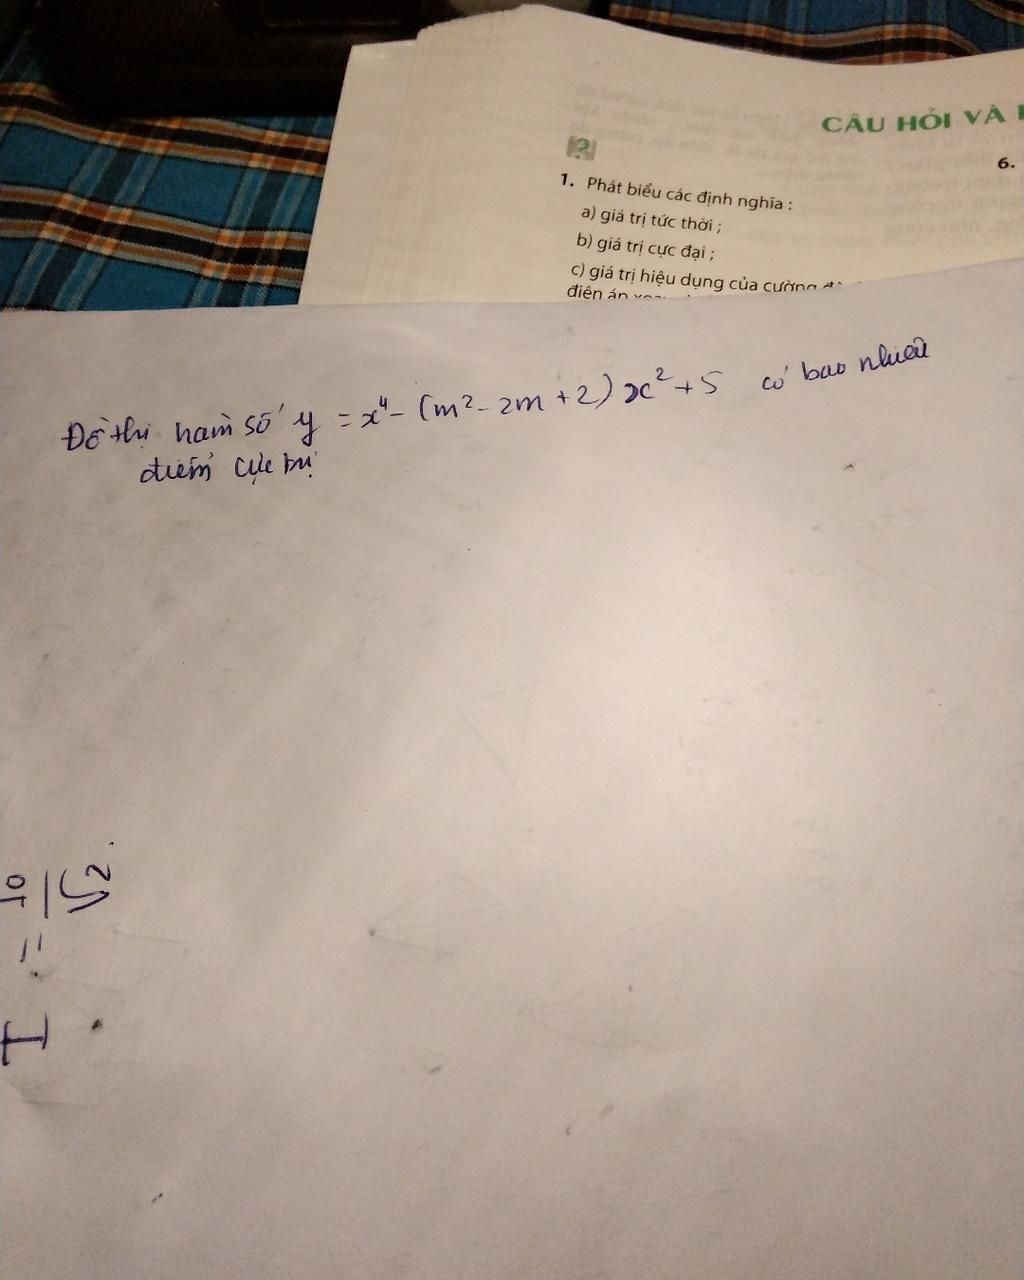 CÂU HỎI VÀ
6.
1. Phát biểu các định nghĩa :
a) giá trị tức thời ;
b) giá trị cực đại ;
c) giá trị hiệu dụng của cường
điện áp
Đồ thị hàm số y = x⁴ - (m² - 2m + 2) x² + 5 có bao nhiêu
điểm cực trị
I = I0/√2